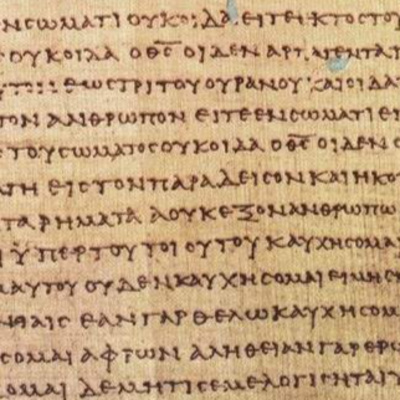 ΕΝϹΩΜΑΤΙ ΟΥΚΟΙΔΑ ΕΙΤΕ ΕΚΤΟϹΤΟΥ
ΟΥΚΟΙΔΑ Ο Θ̅Ϲ̅ ΟΙΔΕΝ ΑΡΠΑΓΕΝΤΑ
ΕΩϹΤΡΙΤΟΥΟΥΡΑΝΟΥ ΚΑΙΟΙΔΑ
ΤΟΝ ΑΝΘΡΩΠΟΝ ΕΙΤΕΕΝϹΩΜΑΤΙ ΕΙ
ΤΟΥϹΩΜΑΤΟϹΟΥΚΟΙΔΑ Ο Θ̅Ϲ̅ ΟΙΔΕΝ Ο
ΓΗ ΕΙϹΤΟΝΠΑΡΑΔΕΙϹΟΝΚΑΙΗΚΟΥ
ΤΑΡΗΜΑΤΑ ΑΟΥΚΕΞΟΝΑΝΘΡΩΠΩ
ΫΠΕΡΤΟΥΤΟΙΟΥΤΟΥ ΚΑΥΧΗϹΟΜΑΙ
ΜΑΥΤΟΥ ΟΥΔΕΝΚΑΥΧΗϹΟΜΑΙΕΙΜΗ
ΕΑΝΓΑΡΘΕΛΩΚΑΥΧΗϹΟΜ
ϹΟΜΑΙ ΑΦΡΩΝ ΑΛΗΘΕΙΑΝΓΑΡΕΡΩ
ΟΜΑΙ ΔΕΜΗΤΙϹΕΜΕΛΟΓΙϹΗΤΑΙΥ